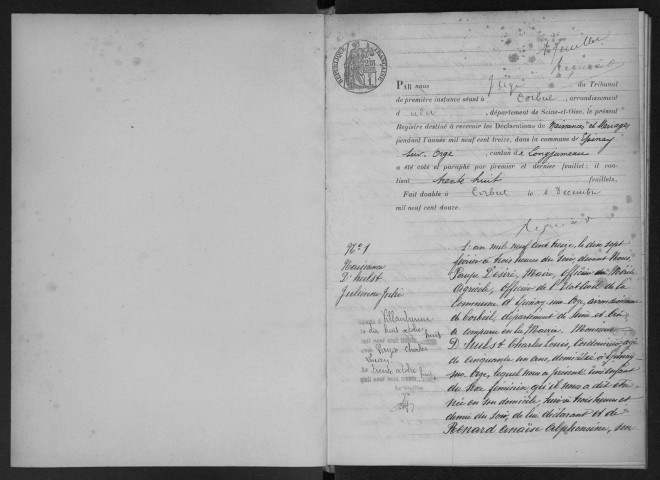 RÉPUBLIQUE FRANÇAISE
1er feuillet
PAR nous Juge du Tribunal
de première instance séant à Corbeil, arrondissement
d udit, département de Seine-et-Oise, le présent
Registre destiné à recevoir les Déclarations de Naissances et Mariages
pendant l'année mil neuf cent treize, dans la commune de Epinay
sur Orge, canton de Longjumeau
a été coté et paraphé par premier et dernier feuillet; il con-
tient trente huit feuillets.
Fait double à Corbeil le 6 Décembre
mil neuf cent douze.
N° 1
Naissance
D'hulst
Julienne
L'an mil neuf cent treize, le dix sept
février à trois heures du soir, devant Nous
Désiré, Maire, officier du Mérite
Agricole, officier de l'Etat civil de la
Commune d'Epinay sur Orge, arrondissement
de Corbeil, département de Seine et Oise
a comparu en la Mairie, Monsieur
D'hulst Charles Louis, Cordonnier, agé
de cinquante un ans, domicilié à Epinay
sur Orge, lequel nous a présenté un enfant
du sexe féminin, qu'il nous a dit être
née en son domicile, hier à trois heures et
demie du soir, de lui déclarant et de
Renard Anaïse Alphonsine, son
dix huit octobre
mil neuf cent
Charles
trente